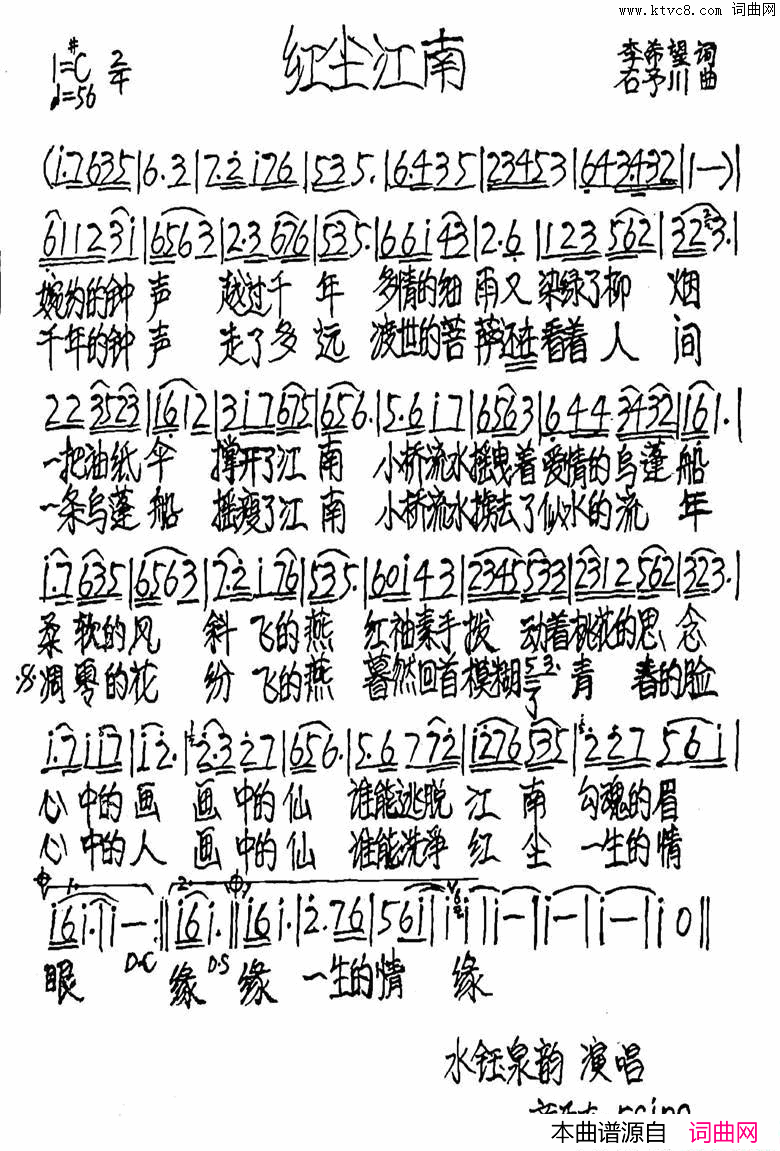 www.ktvc8.com 词曲网
红尘江南
1=#C 2/4
♩=56
李希望 词
石予川 曲
(i·7635|6·3|7·2i76|535·|6·435|23453|643432|1—)|
61123i|6563|2·3676|535·|66i43|2·6|123562|323·|
婉约的钟声 越过千年 多情的细雨又染绿了柳烟
千年的钟声 走了多远 渡世的菩萨还在看着人间
223523|1612|3i7675|656·|5·6i7|6563|6443432|161·|
一把油纸伞 撑开了江南 小桥流水摇曳着爱情的乌蓬船
一条乌蓬船 摇瘦了江南 小桥流水掳去了似水的流年
i·7635|6563|7·2i76|535·|60i43|2345533|2312562|323·|
柔软的风 斜飞的燕 红袖素手拨动着桃花的思念
凋零的花 纷飞的燕 暮然回首模糊了青春的脸
i·7ii7|i2·|2·327|656·|5·6772|i276535|227 56i|
心中的画 画中的仙 谁能逃脱江南 勾魂的眉
心中的人 画中的仙 谁能洗净红尘 一生的情
1. 2.
i6i·|i—:||i6i·||i6i·|2·76|56i|ii||i—|i—|i—|i0||
D.C D.S
眼 缘 缘 一生的情 缘
水钰泉韵 演唱
本曲谱源自 词曲网